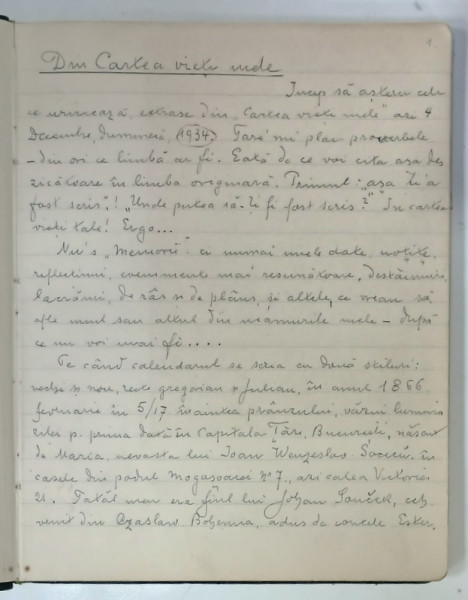 1.
Din Cartea vieții mele
Încep să aștern cele
ce urmează, extrase din „Cartea vieții mele” azi 4
Decembre, Dumineci, (1934). Tare mi plac proverbele
– din ori ce limbă ar fi. Eată de ce voi cita așa des
zicătoare în limba originară. Primul: „așa ți'a
fost scris”! „Unde putea să-ți fi fost scris?” În cartea
vieți tale! Ergo...
Nu's „Memorii” ci numai unele date, notițe,
reflectiuni, evenimente mai resunătoare, destăinuiri
lacrămi, de râs și de plâns, și altele, ce vream să
afle unul sau altul din neamurile mele – după
ce nu voi mai fi....
Pe când calendarul se scria cu două stiluri:
vechi și nou, zecte gregorian și Julian, în anul 1866
februarie în 5/17 înaintea prânzului, văzui lumina
zilei p. prima dată în Capitala Țări, București, născut
de Maria, nevasta lui Ioan Wenzeslas Socecu. în
casele din podul Mogoșoaiei Nº 7, azi calea Victoriei
21. Tatăl meu era fiul lui Johan Souček, ceh
venit din Czaslaw Bohemia, adus de contele Ester,